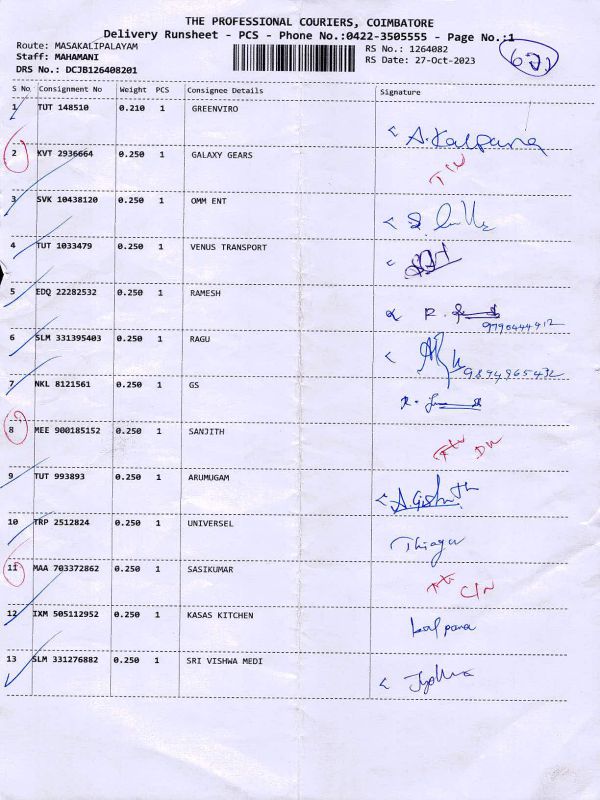 THE PROFESSIONAL COURIERS, COIMBATORE
Delivery Runsheet - PCS - Phone No.:0422-3505555 - Page No.:1
Route: MASAKALIPALAYAM
Staff: MAHAMANI
DRS No.: DCJB126408201
RS No.: 1264082
RS Date: 27-Oct-2023
S No. Consignment No Weight PCS Consignee Details Signature
1 TUT 148510 0.210 1 GREENVIRO
A.Kalpana
2 KVT 2936664 0.250 1 GALAXY GEARS
3 SVK 10438120 0.250 1 OMM ENT
4 TUT 1033479 0.250 1 VENUS TRANSPORT
5 EDQ 22282532 0.250 1 RAMESH
6 SLM 331395403 0.250 1 RAGU
9894965432
7 NKL 8121561 0.250 1 GS
8 MEE 900185152 0.250 1 SANJITH
9 TUT 993893 0.250 1 ARUMUGAM
10 TRP 2512824 0.250 1 UNIVERSEL
Thiagu
11 MAA 703372862 0.250 1 SASIKUMAR
12 IXM 505112952 0.250 1 KASAS KITCHEN
kalpana
13 SLM 331276882 0.250 1 SRI VISHWA MEDI